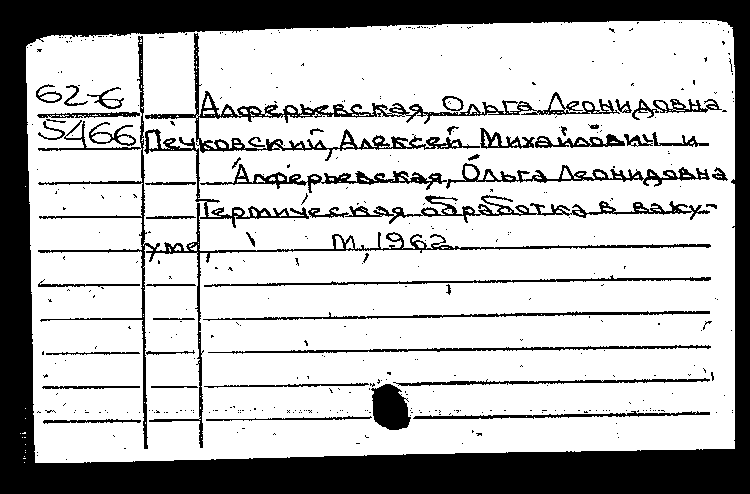 62-6
Алферьевская, Ольга Леонидовна
5466
Печковский, Алексей Михайлович и
Алферьевская, Ольга Леонидовна.
Термическая обработка в ваку-
уме, М., 1962.